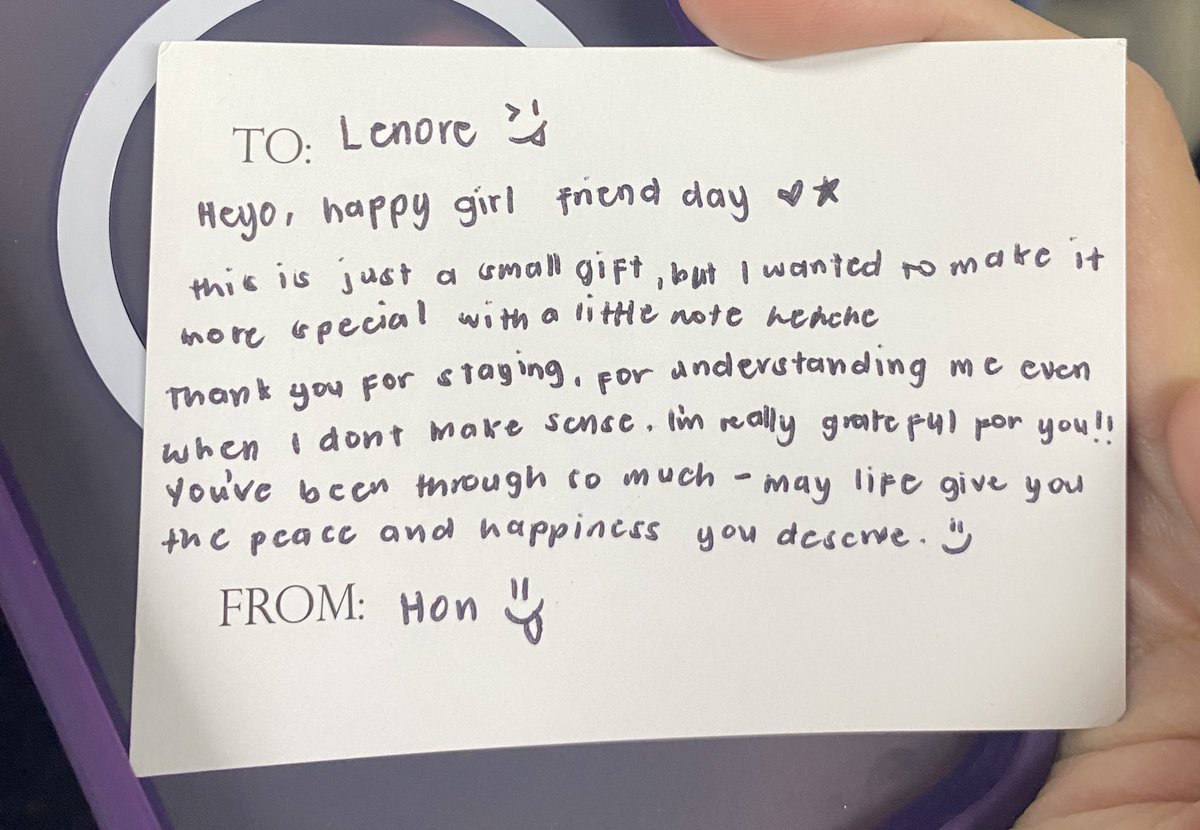 TO: Lenore
Heyo, happy girl friend day ♡☆
this is just a small gift, but I wanted to make it
more special with a little note hehehe
Thank you for staying, for understanding me even
when I dont make sense. I'm really grateful for you!!
You've been through so much - may life give you
the peace and happiness you deserve. :)
FROM: Hon